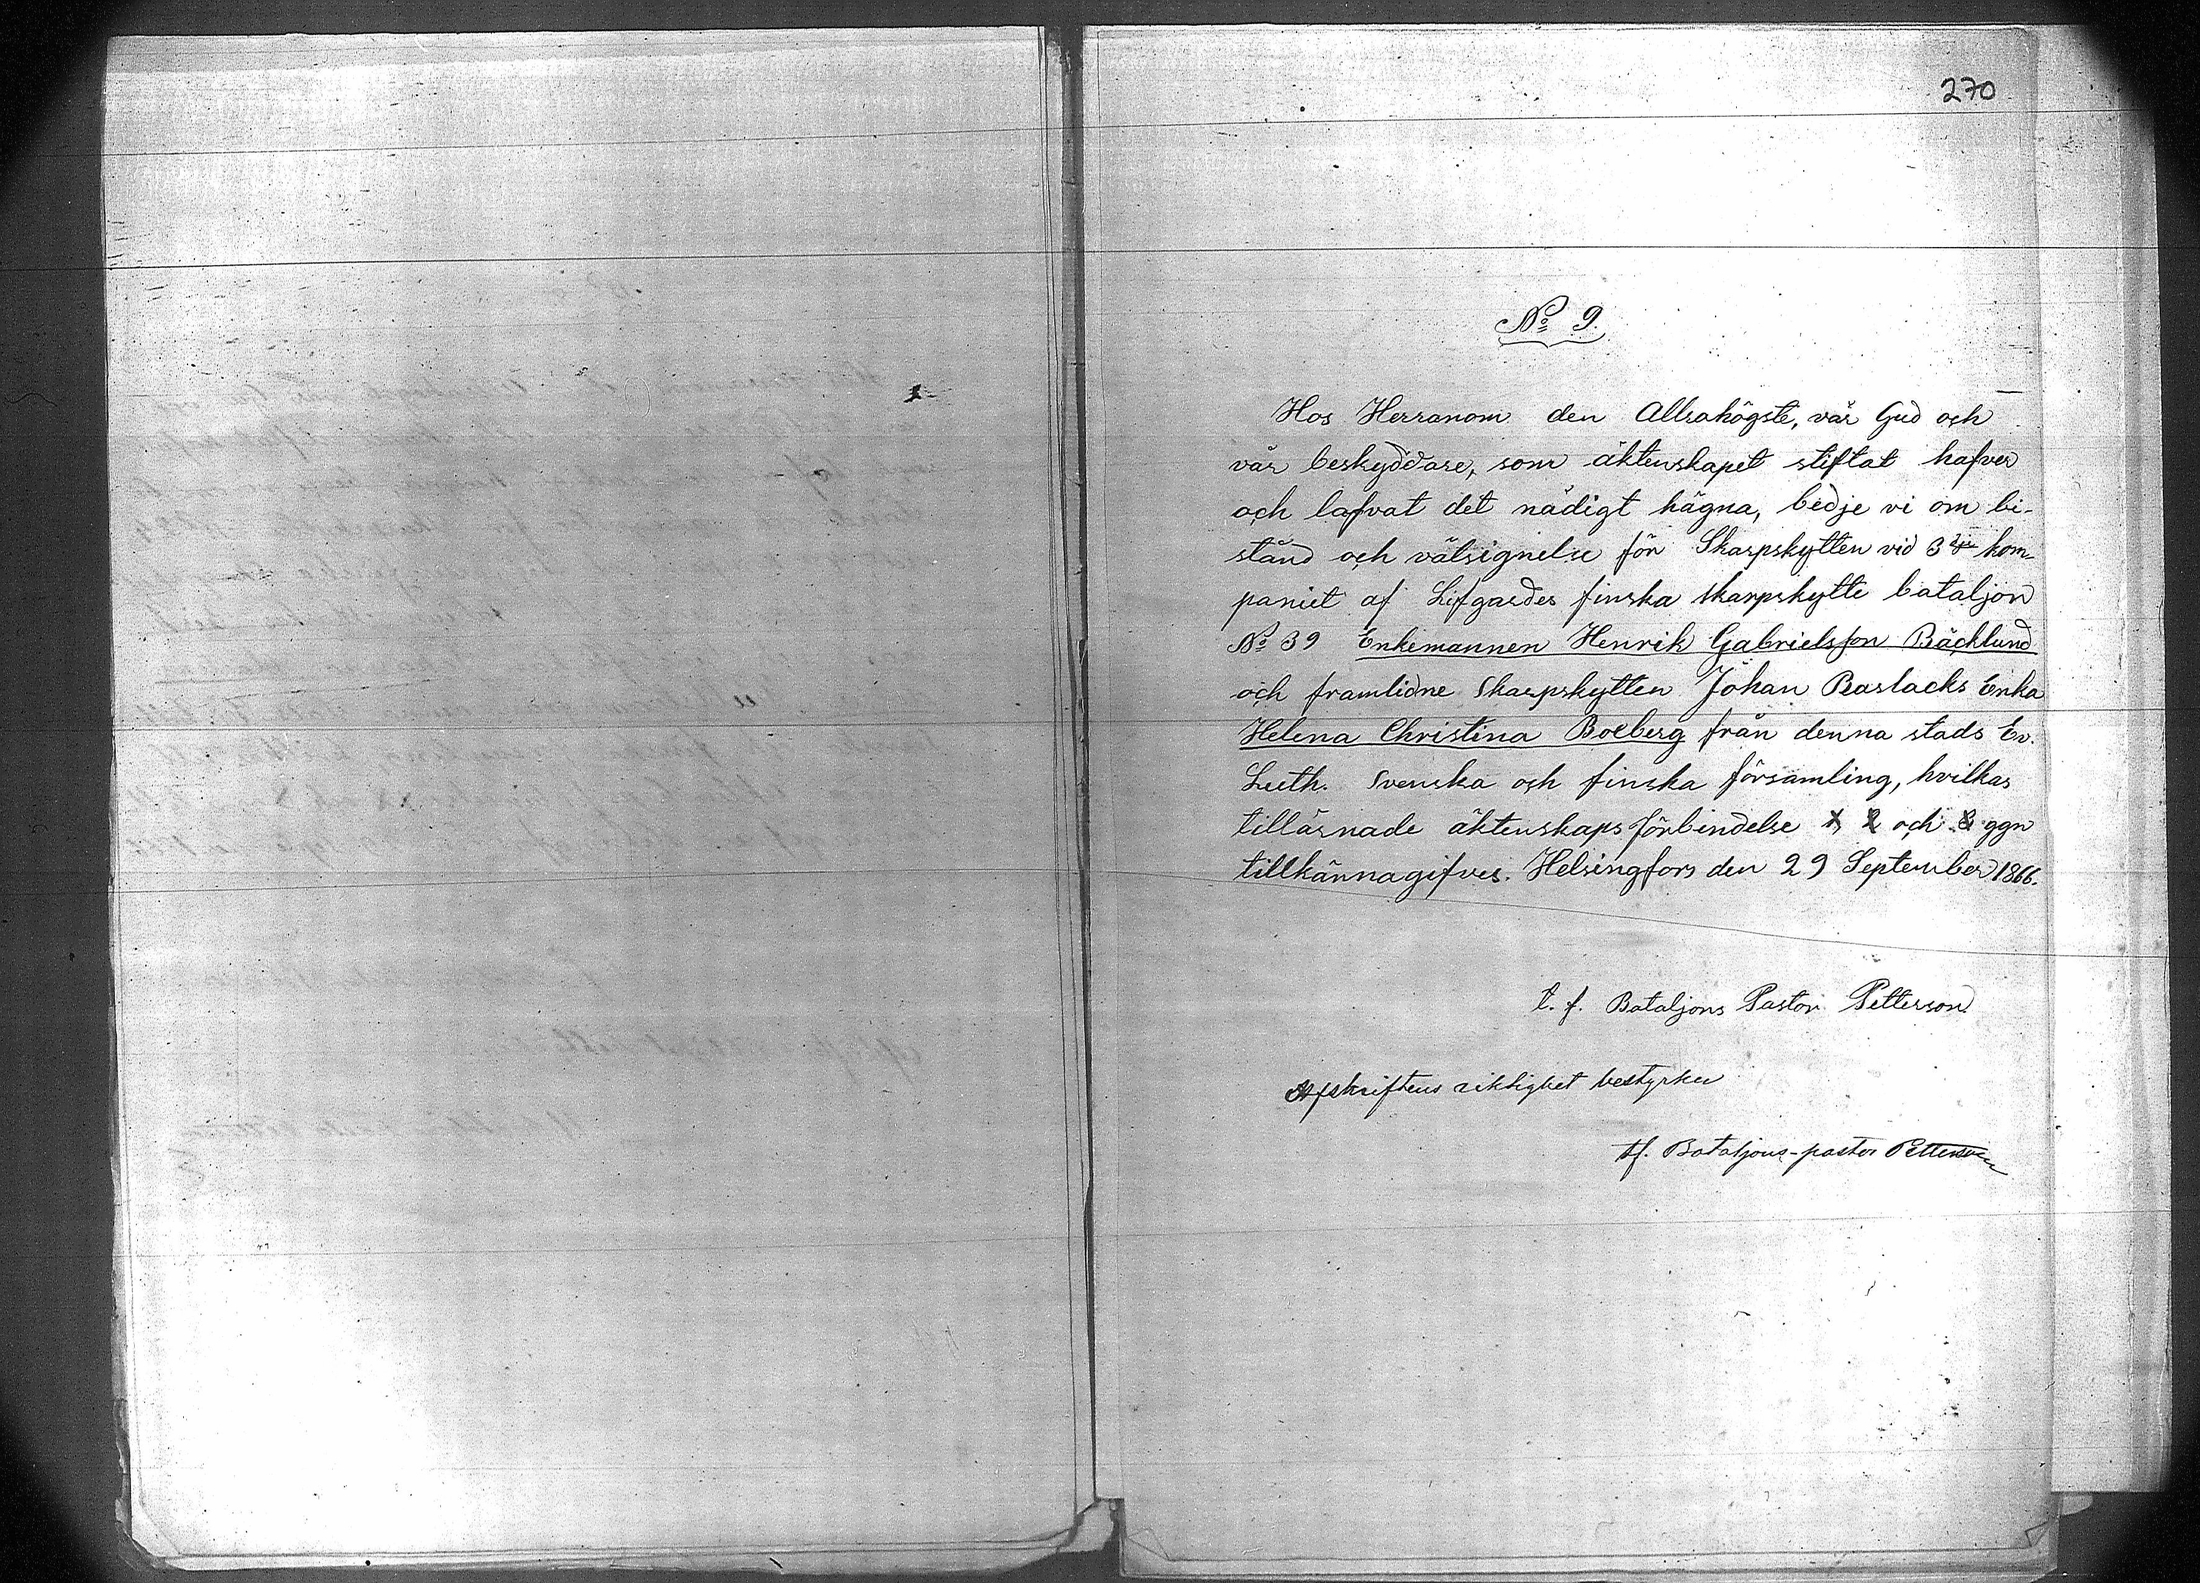 270
No 9.
Hos Herranom den Allrahögste, vår Gud och
vår beskyddare, som äktenskapet stiftat hafver
och lofvat det nådigt hägna, bedje vi om bi-
stånd och välsignelse för Skarpskytten vid 3dje kom-
paniet af Lifgardes finska skarpskytte bataljon
No 39 Enkemannen Henrik Gabrielsson Bäcklund
och framlidne Skarpskytten Johan Baslacks Enka
Helena Christina Boeberg från denna stads Ev.
Luth. Svenska och finska församling, hvilkas
tillärnade äktenskapsförbindelse 1 2 och 3 ggn
tillkännagifves. Helsingfors den 29 September 1866.
t. f. Bataljons Pastor Petterson
Afskriftens riktighet bestyrker
tf. Bataljons-pastor Petterson